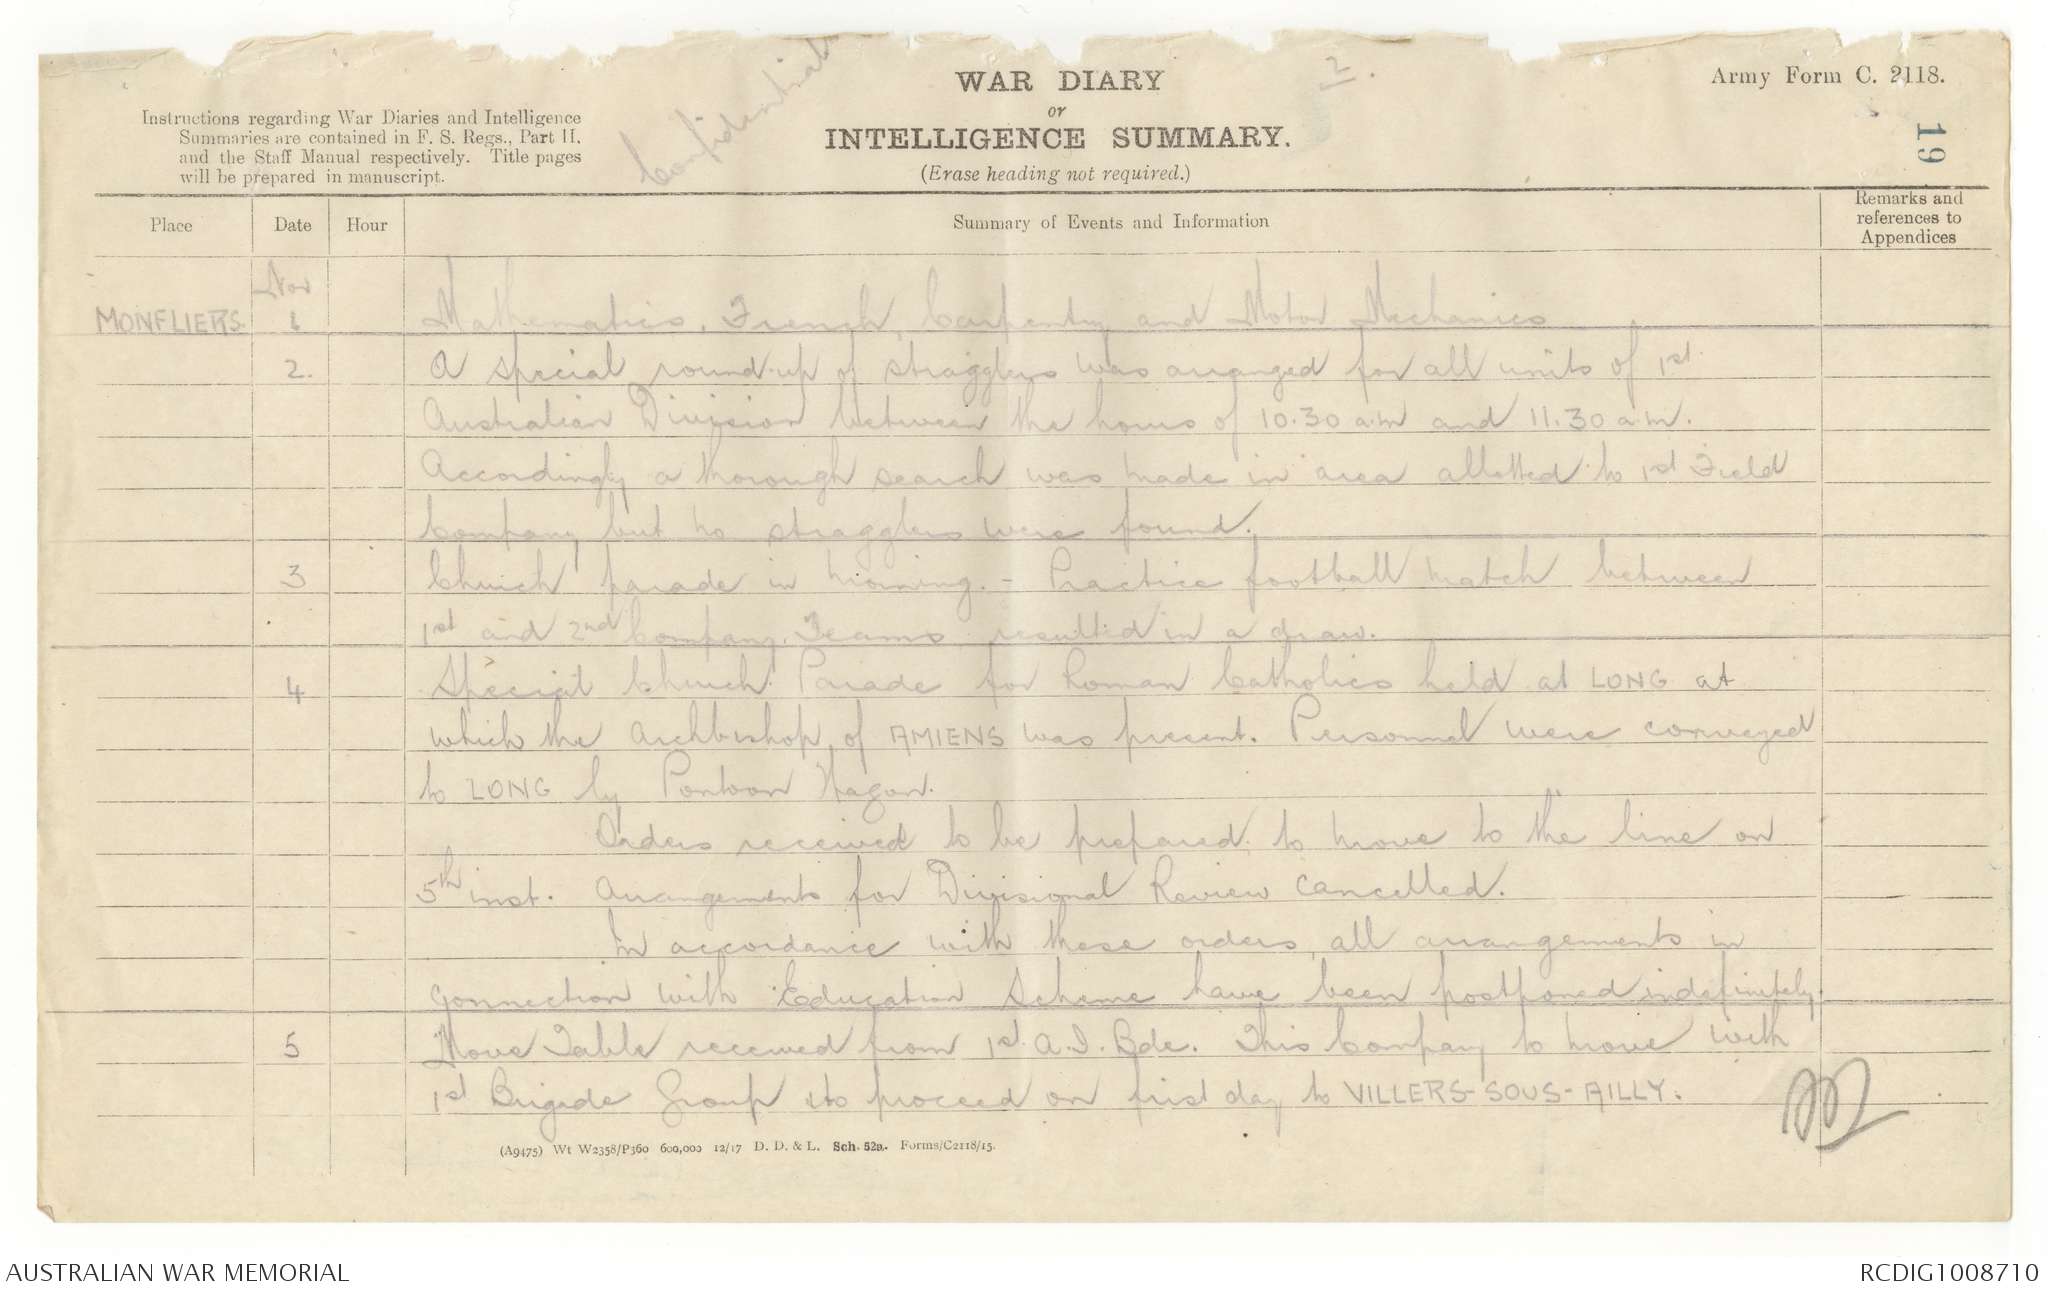 Confidential
2.
WAR DIARY
or
INTELLIGENCE SUMMARY.
(Erase heading not required.)
Army Form C. 2118.
19
Instructions regarding War Diaries and Intelligence
Summaries are contained in F. S. Regs., Part II.
and the Staff Manual respectively. Title pages
will be prepared in manuscript.
Place Date Hour Summary of Events and Information Remarks and references to Appendices
Nov
MONFLIERS 1 Mathematics, French, Carpentry and Motor Mechanics
2. A special round-up of stragglers was arranged for all units of 1st
Australian Division between the hours of 10.30 a.m and 11.30 a.m.
Accordingly a thorough search was made in area allotted to 1st Field
Company but no stragglers were found.
3 Church parade in morning. - Practice football match between
1st and 2nd Company Teams resulted in a draw.
4 Special Church Parade for Roman Catholics held at LONG at
which the Archbishop of AMIENS was present. Personnel were conveyed
to LONG by Pontoon Wagon.
Orders received to be prepared to move to the line on
5th inst. Arrangements for Divisional Review cancelled.
In accordance with these orders, all arrangements in
connection with Education Scheme have been postponed indefinitely.
5 Move Table received from 1st A.I. Bde. This Company to move with
1st Brigade Group & to proceed on first day to VILLERS-SOUS-AILLY.
(A9475) Wt W2358/P360 600,000 12/17 D. D. & L. Sch. 52a. Forms/C2118/15.
AUSTRALIAN WAR MEMORIAL
RCDIG1008710